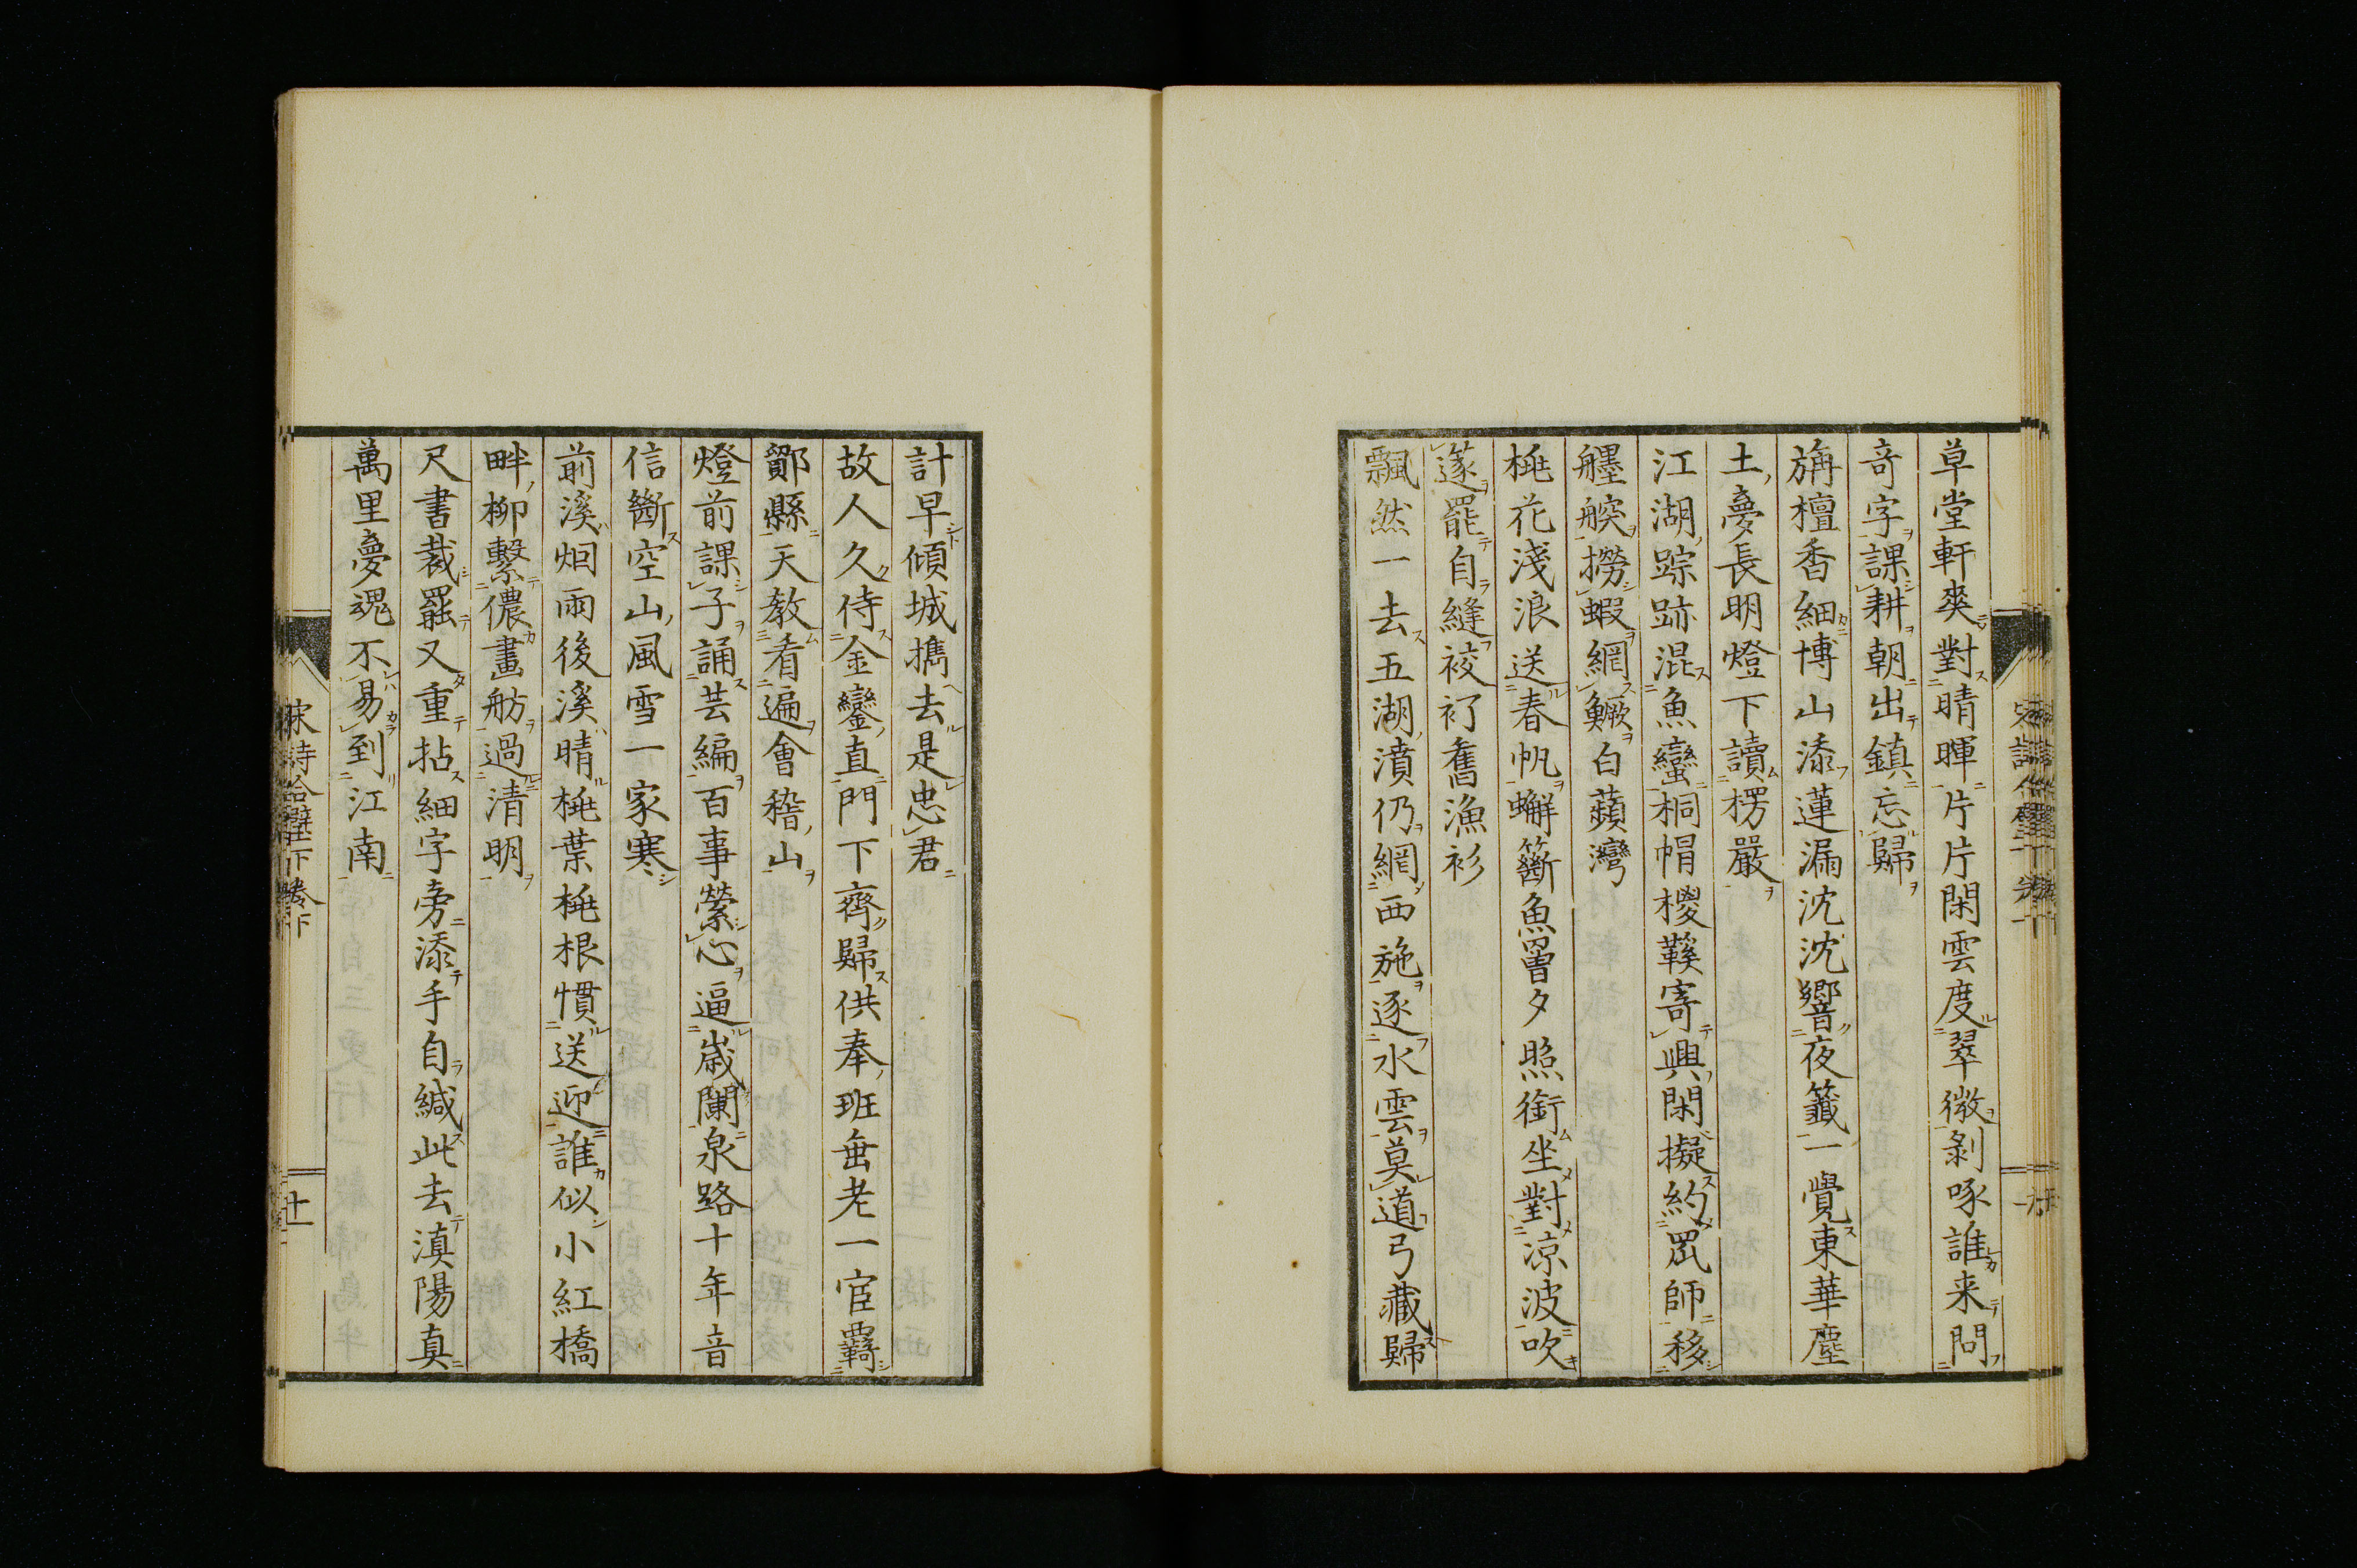 草堂軒爽對晴暉片片閑雲度翠微剝啄誰来問
奇字課耕朝出鎮忘歸
旃檀香細博山添蓮漏沈沈響夜籤一覺東華塵
土夢長明燈下讀楞嚴
江湖踪跡混魚蠻桐帽椶鞵寄興閑擬約罛師移
艃艐撈蝦網鱖白蘋灣
桃花淺浪送春帆蠏籪魚罾夕照銜坐對凉波吹
篴罷自縫衱衤舊漁衫
飄然一去五湖濆仍網西施逐水雲莫道弓藏歸
計早傾城擕去是忠君
故人久侍金鑾直門下齊歸供奉班垂老一官羇
鄮縣天教看遍會稽山
燈前課子誦芸編百事縈心逼歲闌泉路十年音
信斷空山風雪一家寒
前溪烟雨後溪晴桃葉桃根慣送迎誰似小紅橋
畔柳繫儂畫舫過清明
尺書裁罷又重拈細字旁添手自緘此去滇陽真
萬里夢魂不易到江南
下卷
十一